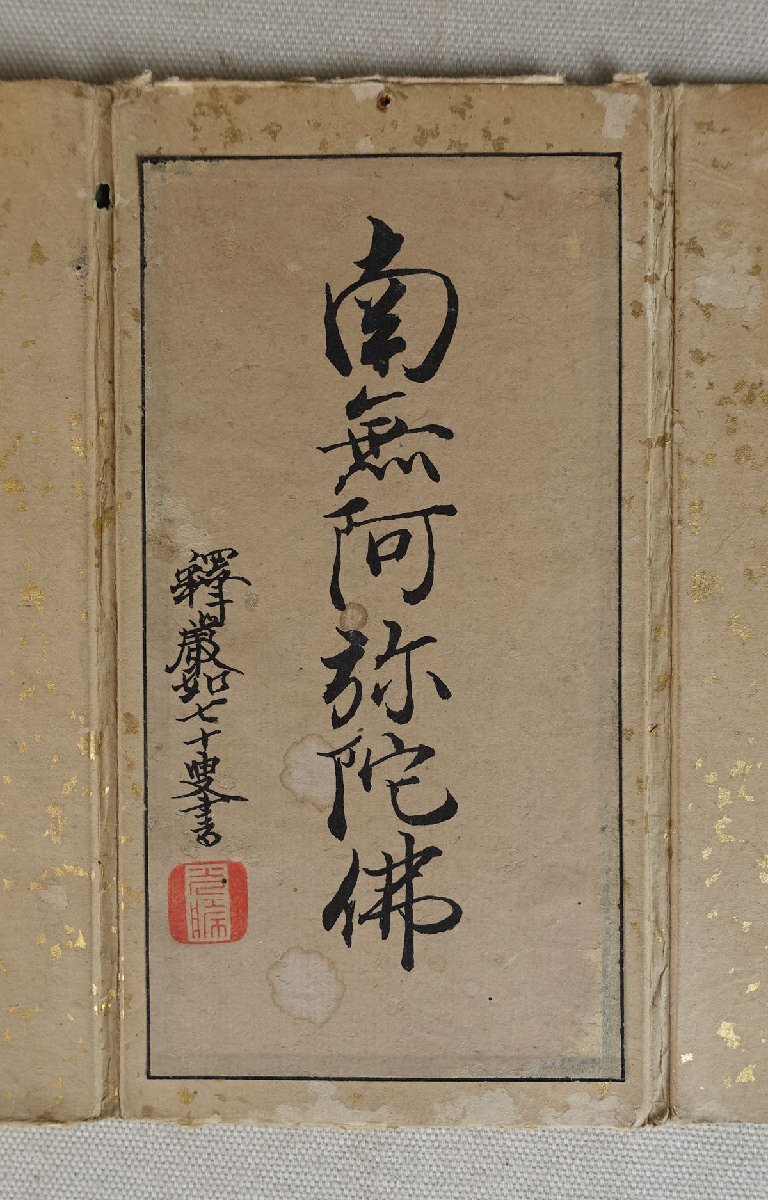 南無阿弥陀佛
釋厳如七十叟書